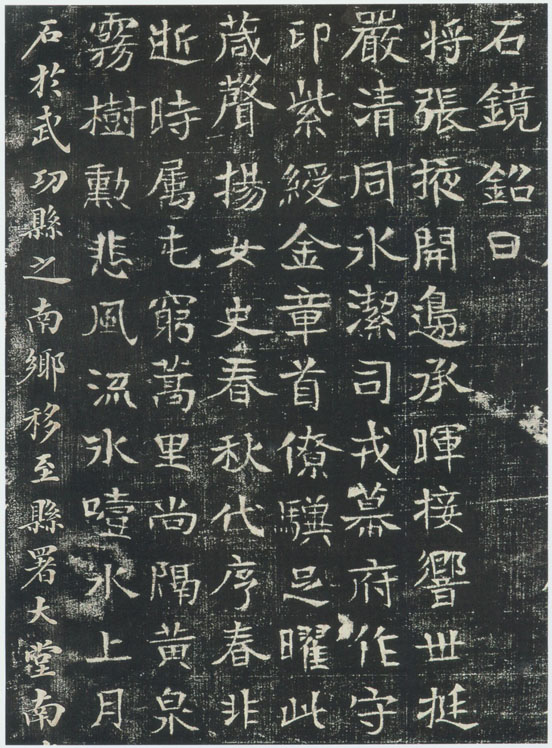 石鏡銘曰
将張掖開邊承暉接響世挺
嚴清同氷潔司戎幕府作守
印紫綬金章首僚驥足曜此
蕆聲揚女史春秋代序春非
逝時属屯窮蒿里尚隔黃泉
霧樹勲悲風流氷噎水上月
石於武功縣之南鄉移至縣署大堂南